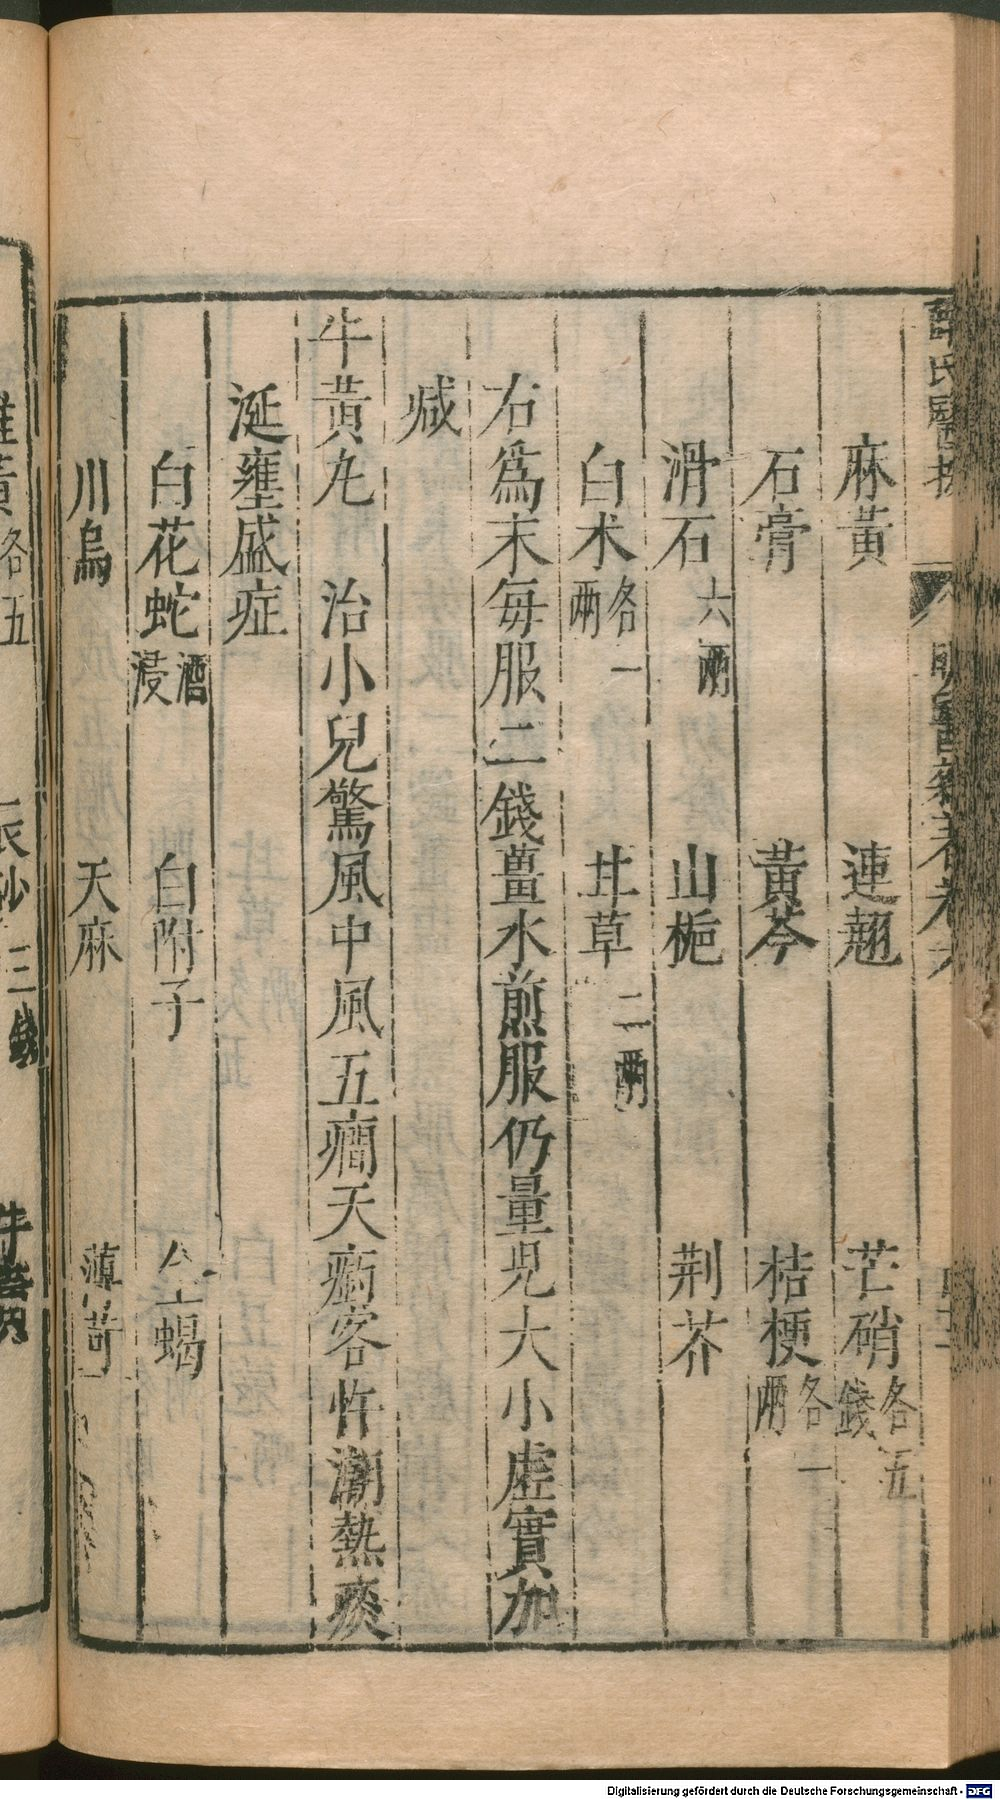 薛氏醫按
麻黃 連翹 芒硝各五錢
石膏 黃芩 桔梗各一兩
滑石六兩 山梔 荆芥
白术各一兩 甘草二兩
右爲末每服二錢薑水煎服仍量児大小虛實加
减
牛黃丸 治小兒驚風中風五癇天瘹客忤潮熱痰
涎壅盛症
白花蛇酒浸 白附子 全蝎
川烏 天麻 薄荷
雄黃各五
辰砂三錢
牛黃
Digitalisierung gefördert durch die Deutsche Forschungsgemeinschaft - DFG